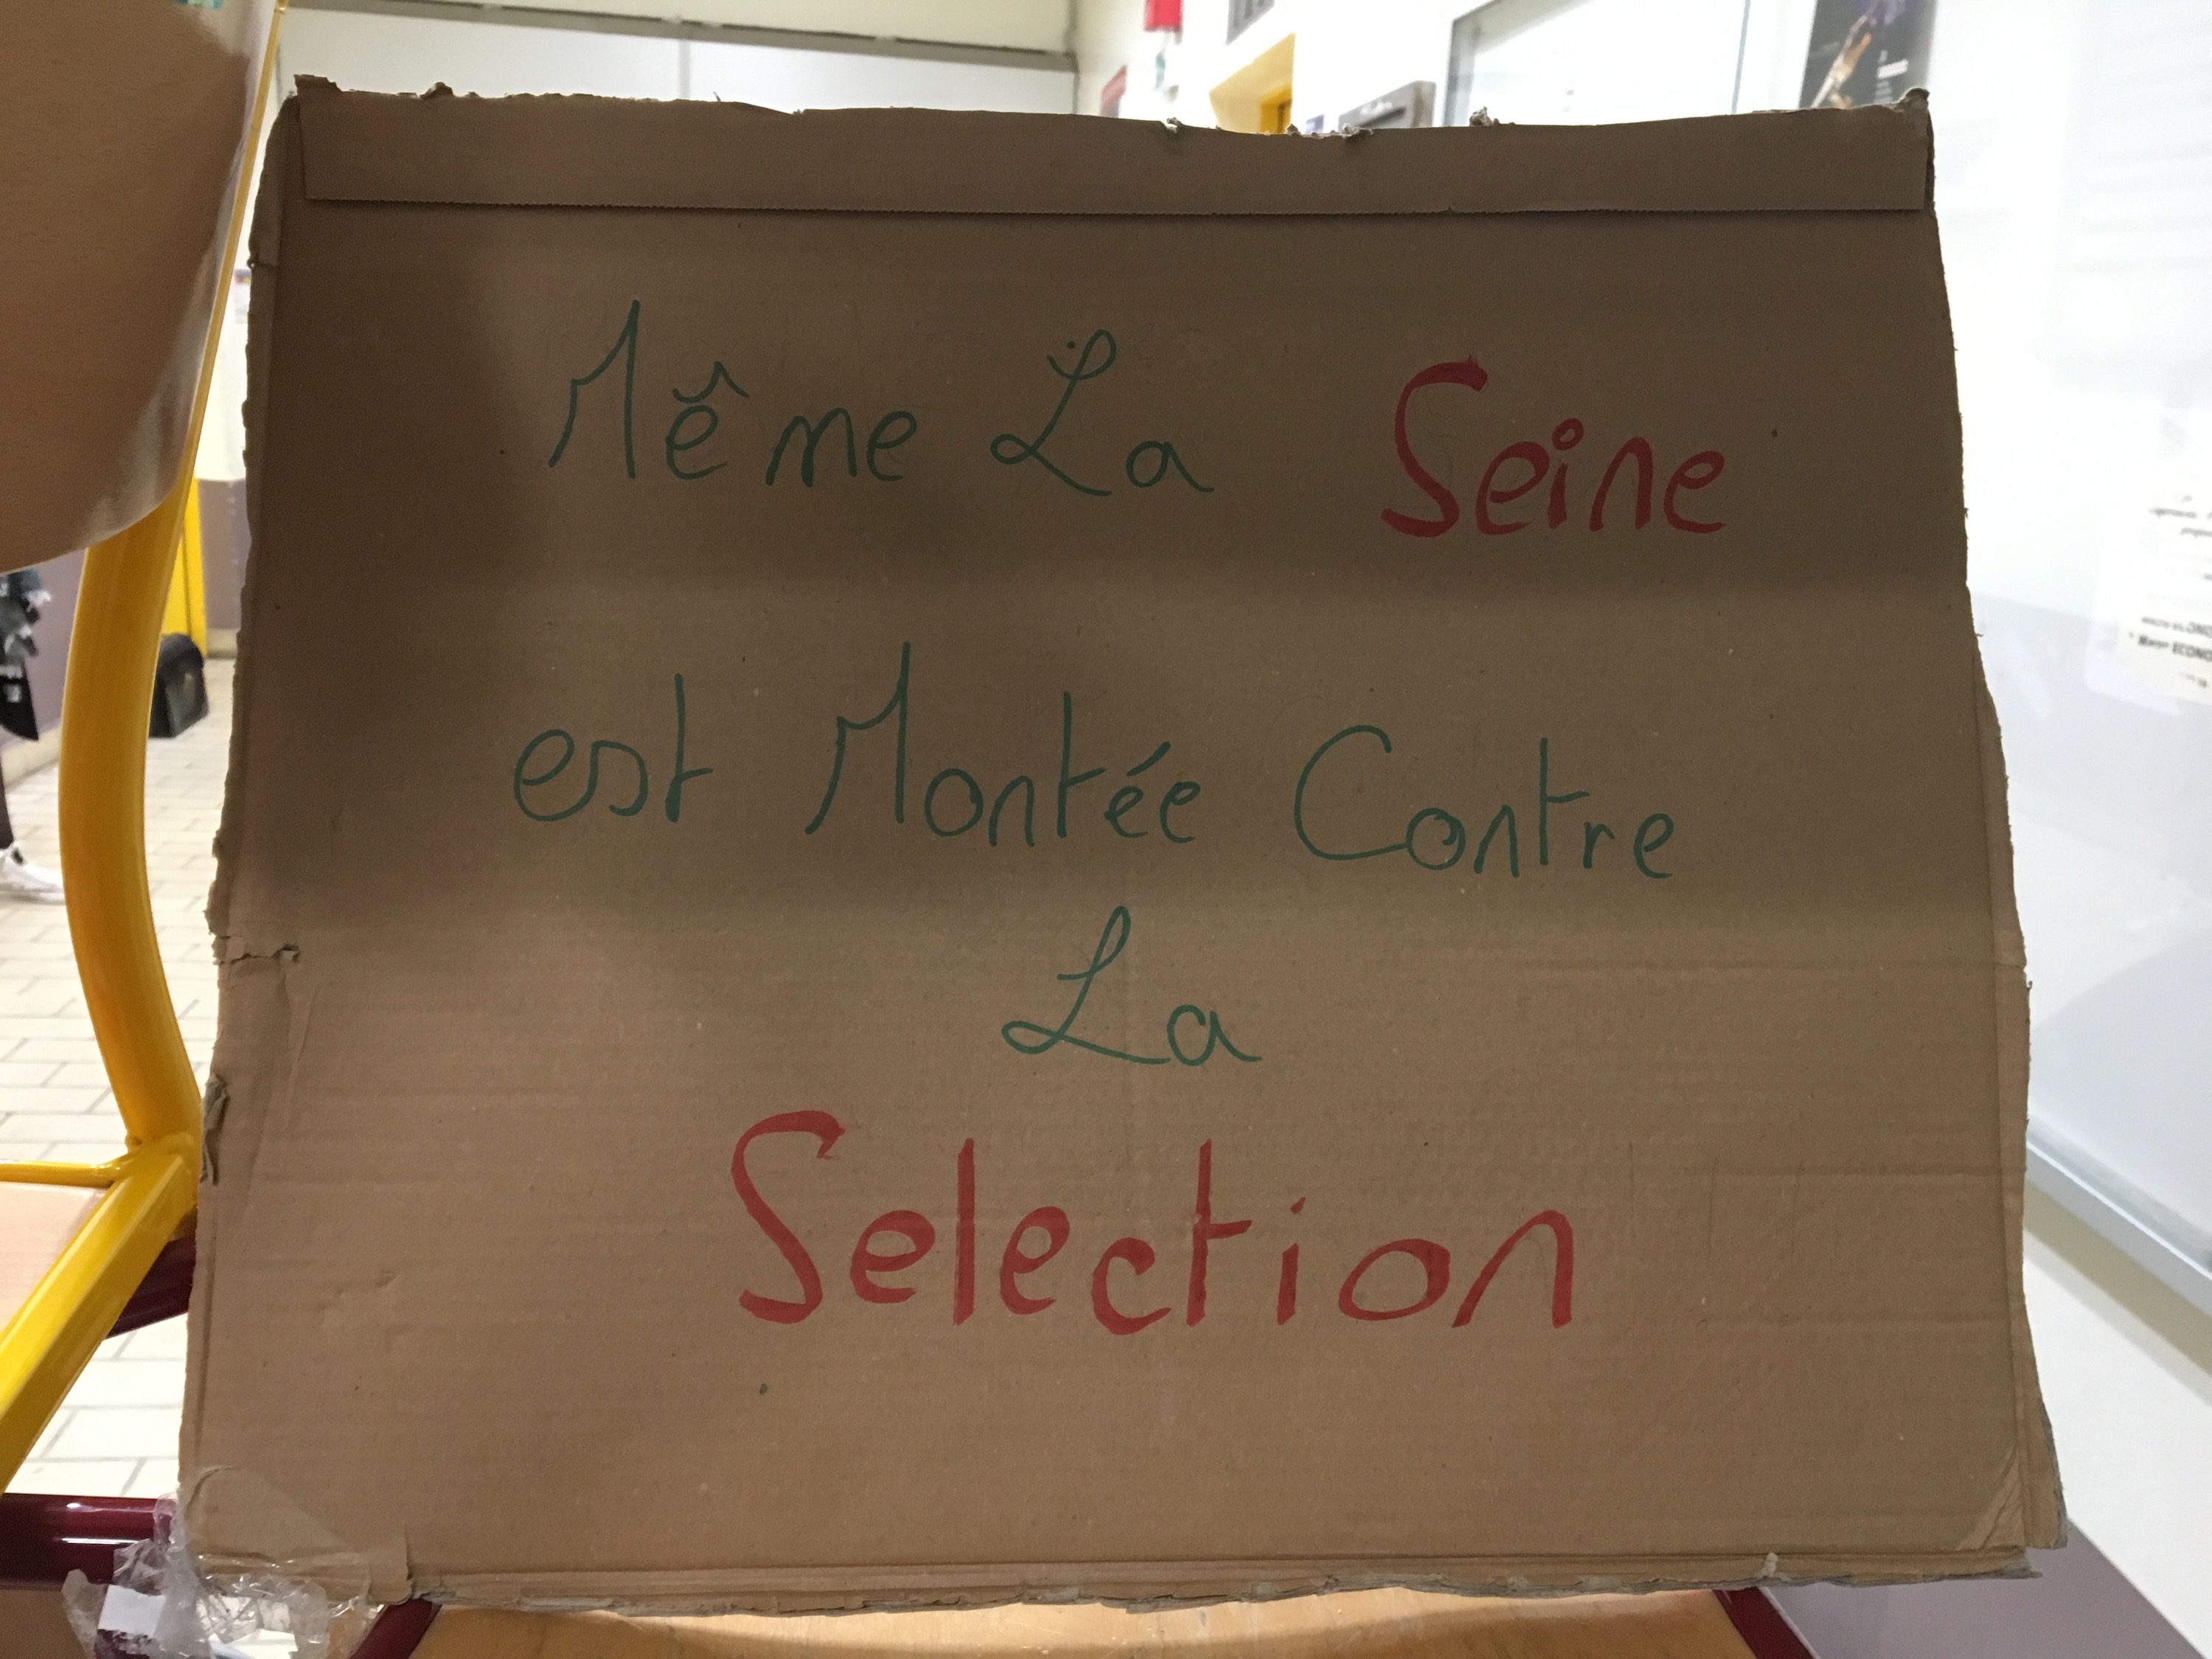 Même La Seine
est Montée Contre
La
Selection